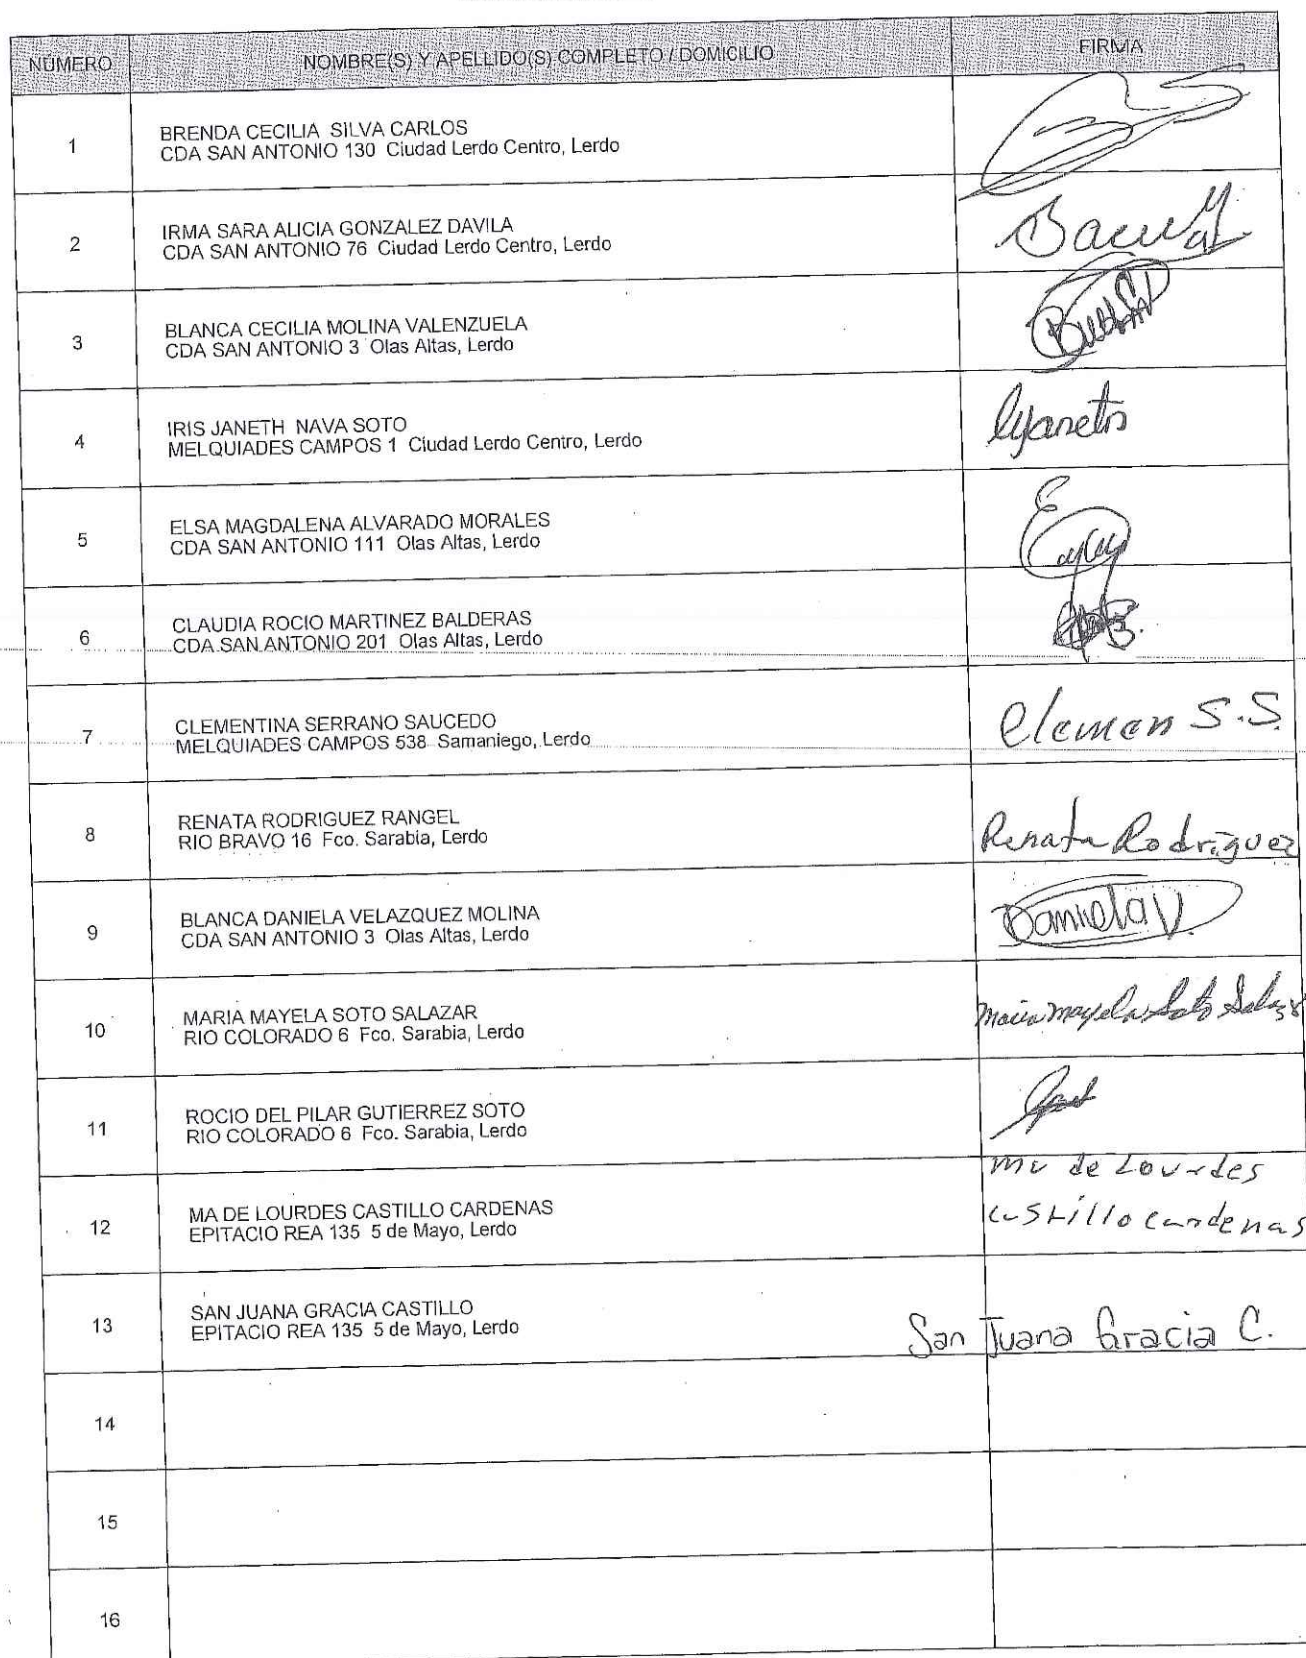 NÚMERO NOMBRE(S) Y APELLIDO(S) COMPLETO / DOMICILIO FIRMA
1 BRENDA CECILIA SILVA CARLOS
CDA SAN ANTONIO 130 Ciudad Lerdo Centro, Lerdo
2 IRMA SARA ALICIA GONZALEZ DAVILA
CDA SAN ANTONIO 76 Ciudad Lerdo Centro, Lerdo
3 BLANCA CECILIA MOLINA VALENZUELA
CDA SAN ANTONIO 3 Olas Altas, Lerdo
4 IRIS JANETH NAVA SOTO
MELQUIADES CAMPOS 1 Ciudad Lerdo Centro, Lerdo
5 ELSA MAGDALENA ALVARADO MORALES
CDA SAN ANTONIO 111 Olas Altas, Lerdo
6 CLAUDIA ROCIO MARTINEZ BALDERAS
CDA SAN ANTONIO 201 Olas Altas, Lerdo
7 CLEMENTINA SERRANO SAUCEDO Clemen S.S.
MELQUIADES CAMPOS 538 Samaniego, Lerdo
8 RENATA RODRIGUEZ RANGEL Renata Rodriguez
RIO BRAVO 16 Fco. Sarabia, Lerdo
9 BLANCA DANIELA VELAZQUEZ MOLINA Daniela V.
CDA SAN ANTONIO 3 Olas Altas, Lerdo
10 MARIA MAYELA SOTO SALAZAR Maria Mayela Soto Salazar
RIO COLORADO 6 Fco. Sarabia, Lerdo
11 ROCIO DEL PILAR GUTIERREZ SOTO
RIO COLORADO 6 Fco. Sarabia, Lerdo
12 MA DE LOURDES CASTILLO CARDENAS Ma de Lourdes
EPITACIO REA 135 5 de Mayo, Lerdo Castillo Cardenas
13 SAN JUANA GRACIA CASTILLO San Juana Gracia C.
EPITACIO REA 135 5 de Mayo, Lerdo
14
15
16